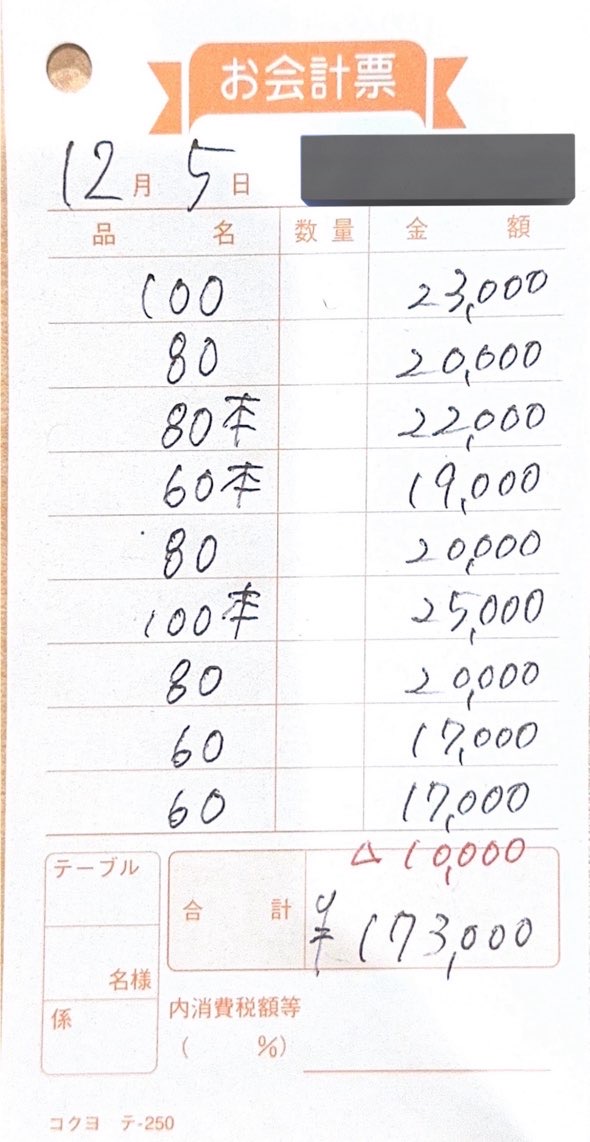 お会計票
12月 5日
品名 数量 金額
100 23,000
80 20,000
80本 22,000
60本 19,000
80 20,000
100本 25,000
80 20,000
60 17,000
60 17,000
△10,000
テーブル
合計 ¥173,000
名様
係
内消費税額等
( %)
コクヨ テ-250